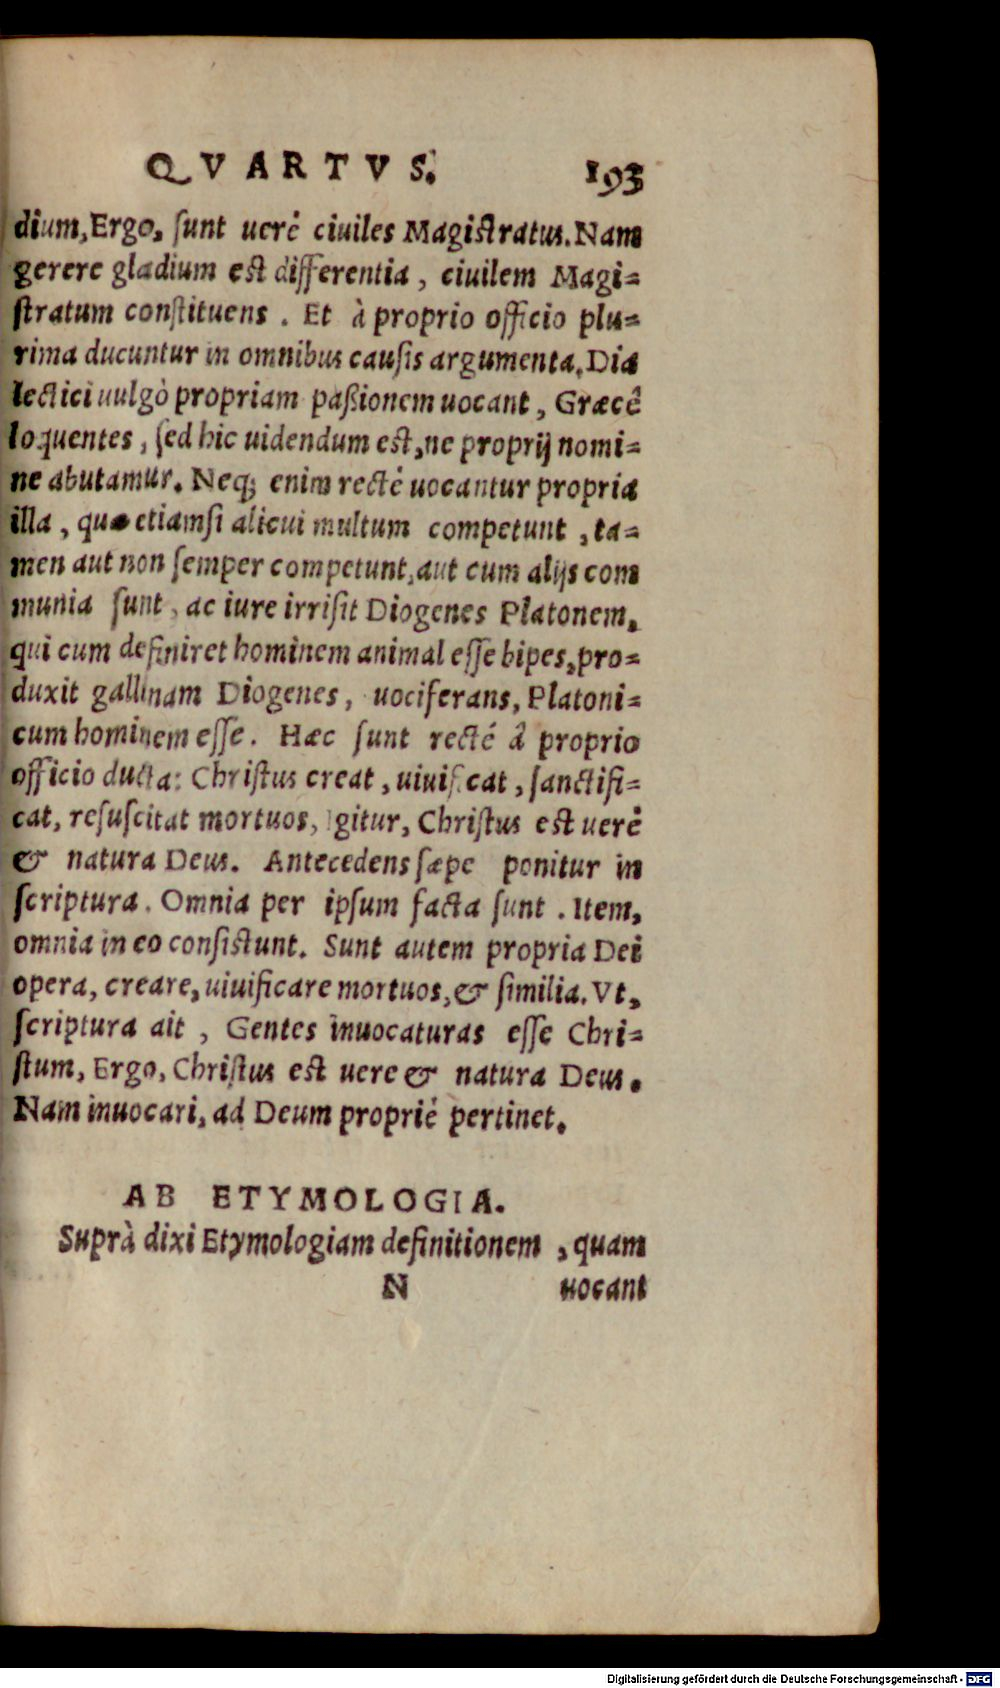 QVARTVS. 193
dium, Ergo, ſunt uerè ciuiles Magiſtratus. Nam
gerere gladium eſt differentia, ciuilem Magi-
ſtratum conſtituens. Et à proprio officio plu-
rima ducuntur in omnibus cauſis argumenta. Dia
lectici uulgò propriam paßionem uocant, Græcè
loquentes, ſed hic uidendum eſt, ne proprij nomi-
ne abutamur. Neq; enim rectè uocantur propria
illa, quæ etiamſi alicui multum competunt, ta-
men aut non ſemper competunt, aut cum alijs com
munia ſunt, ac iure irriſit Diogenes Platonem,
qui cum definiret hominem animal eſſe bipes, pro-
duxit gallinam Diogenes, uociferans, Platoni-
cum hominem eſſe. Hæc ſunt rectè à proprio
officio ducta: Chriſtus creat, uiuificat, ſanctifi-
cat, reſuſcitat mortuos, Igitur, Chriſtus eſt uerè
& natura Deus. Antecedens ſæpe ponitur in
ſcriptura. Omnia per ipſum facta ſunt. Item,
omnia in eo conſiſtunt. Sunt autem propria Dei
opera, creare, uiuificare mortuos, & ſimilia. Vt,
ſcriptura ait, Gentes inuocaturas eſſe Chri-
ſtum, Ergo, Chriſtus eſt uere & natura Deus.
Nam inuocari, ad Deum propriè pertinet.
AB ETYMOLOGIA.
Suprà dixi Etymologiam definitionem, quam
N uocant
Digitalisierung gefördert durch die Deutsche Forschungsgemeinschaft - DFG